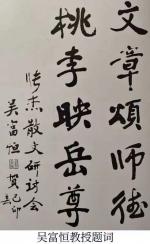 文章頌師德
桃李映岳尊
张杰散文研讨会
吴富恒
贺
己卯
吴富恒教授题词